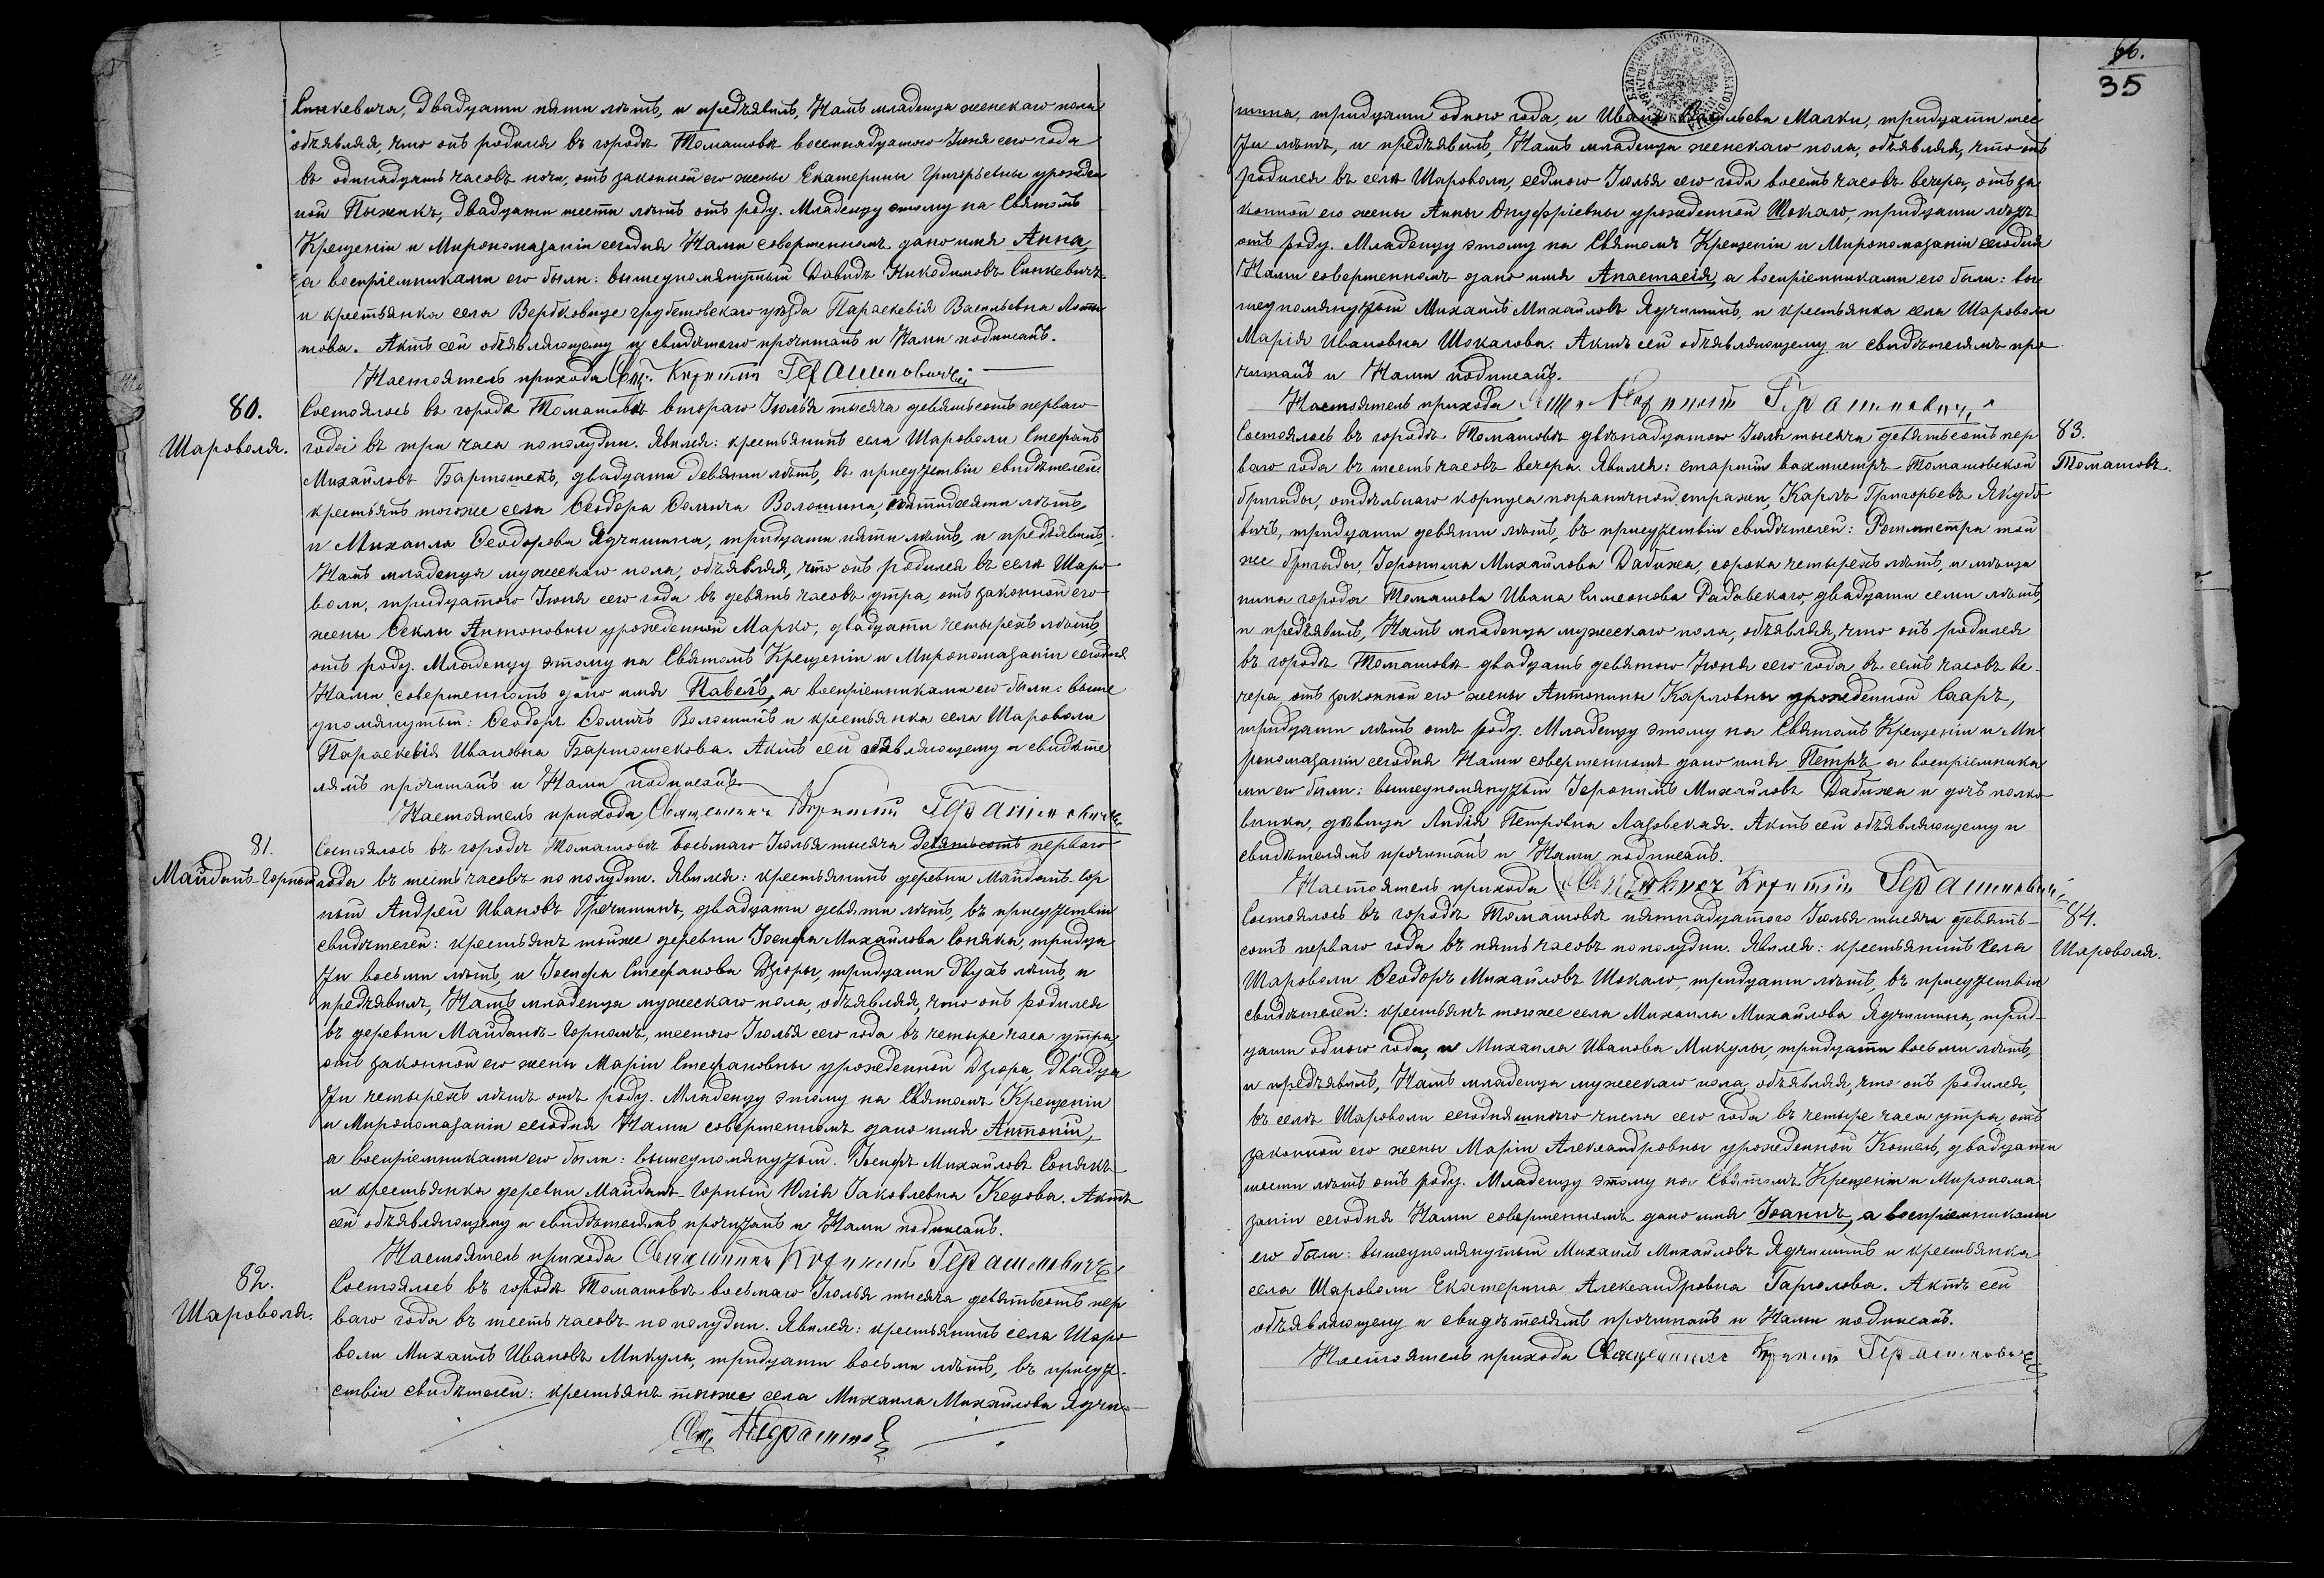 Синкевича, двадцати пяти лѣтъ, и предъявилъ Намъ младенца женскаго пола
объявляя, что онъ родился въ городѣ Томашовѣ восемнадцатого Іюня сего года
въ одинадцать часовъ ночи, отъ законной его жены Екатерины Григорьевны урожден
ной Пыжикъ, двадцати шести лѣтъ отъ роду. Младенцу этому на Святомъ
Крещеніи и Миропомазаніи сегодня Нами совершенномъ дано имя Анна,
а воспріемниками его были: вышеупомянутый Давидъ Никодимовъ Синкевичъ
и крестьянка села Вербковице грубешовскаго уѣзда Параскевія Васильевна
това. Актъ сей объявляющему и свидѣтелю прочитанъ и Нами подписанъ.
Настоятель прихода Свящ. Герашиновичъ
80.
Шароволя.
Состоялось въ городѣ Томашовѣ втораго Іюлья тысяча девятьсотъ перваго
года въ три часа пополудни. Явился: крестьянинъ села Шароволи Стефанъ
Михайловъ Бартошекъ, двадцати девяти лѣтъ, въ присутствіи свидѣтелей:
крестьянъ тогоже села Ѳеодора Ѳомича Волошина, пятидесяти лѣтъ,
и Михаила Ѳеодорова Ядчишина, тридцати пяти лѣтъ, и предъявилъ,
Намъ младенца мужескаго пола, объявляя, что онъ родился въ селѣ Шаро
воли, тридцатого Іюня сего года въ девять часовъ утра, отъ законной его
жены Ѳеклы Антоновны урожденной Марко, двадцати четырехъ лѣтъ,
отъ роду. Младенцу этому на Святомъ Крещеніи и Миропомазаніи сегодня
Нами совершенномъ дано имя Павелъ, а воспріемниками его были: выше
упомянутый: Ѳеодоръ Ѳомичъ Волошинъ и крестьянка села Шароволи
Параскевія Ивановна Бартошекова. Актъ сей объявляющему и свидѣте
лямъ прочитанъ и Нами подписанъ
Настоятель прихода, Священникъ Герашиновичъ
81.
Майданъ-Горный
Состоялось въ городѣ Томашовѣ восьмаго Іюлья тысяча девятьсотъ перваго
года въ шесть часовъ по полудни. Явился: крестьянинъ деревни Майданъ-Гор
ный Андрей Ивановъ Гречишинъ, двадцати девяти лѣтъ, въ присутствіи
свидѣтелей: крестьянъ тойже деревни Іосифа Михайлова Соняка, тридца
ти восьми лѣтъ, и Іосифа Стефанова Дзюры, тридцати двухъ лѣтъ, и
предъявилъ, Намъ младенца мужескаго пола, объявляя, что онъ родился
въ деревни Майданѣ-Горномъ, шестого Іюлья сего года въ четыре часа утра,
отъ законной его жены Маріи Стефановны урожденной Дзюра, двадца
ти четырехъ лѣтъ отъ роду. Младенцу этому на Святомъ Крещеніи
и Миропомазаніи сегодня Нами совершенномъ дано имя Антоній,
а воспріемниками его были: вышеупомянутый. Іосифъ Михайловъ Сонякъ
и крестьянка деревни Майданъ-Горный Юлія Іаковлевна Кецова. Актъ
сей объявляющему и свидѣтелямъ прочитанъ и Нами подписанъ.
Настоятель прихода Священникъ Герашиновичъ
82.
Шароволя.
Состоялось въ городѣ Томашовѣ восьмаго Іюлья тысяча девятьсотъ пер
ваго года въ шесть часовъ по полудни. Явился: крестьянинъ села Шаро
воли Михаилъ Ивановъ Микула, тридцати восьми лѣтъ, въ присут-
ствіи свидѣтелей: крестьянъ тогоже села Михаила Михайлова Ядчи-
66.
35
шина, тридцати одного года, и Ивана Васильева Малки, тридцати шес
ти лѣтъ, и предъявилъ, Намъ младенца женскаго пола, объявляя, что онъ
родился въ селѣ Шароволи, седмого Іюлья сего года восемь часовъ вечера, отъ за
конной его жены Анны Онуфріевны урожденной Шокало, тридцати лѣтъ
отъ роду. Младенцу этому на Святомъ Крещеніи и Миропомазаніи сегодня
Нами совершенномъ дано имя Анастасія, а воспріемниками его были: вы
шеупомянутый Михаилъ Михайловъ Ядчишинъ, и крестьянка села Шароволи
Марія Ивановна Шокалова. Актъ сей объявляющему и свидѣтелямъ про
читанъ и Нами подписанъ.
Настоятель прихода Герашиновичъ
83.
Томашовъ.
Состоялось въ городѣ Томашовѣ двѣнадцатого Іюля тысяча девятьсотъ пер
ваго года въ шесть часовъ вечера. Явился: старшій вахмистръ Томашовской
бригады, отдѣльного корпуса пограничной стражи, Карлъ Григорьевъ Якубо
вичъ, тридцати девяти лѣтъ, въ присутствіи свидѣтелей: Ротмистра той
же бригады, Іеронима Михайлова Дабижа, сорока четырехъ лѣтъ, и мѣща
нина города Томашова Ивана Симеонова Радавскаго, двадцати семи лѣтъ,
и предъявилъ, Намъ младенца мужескаго пола, объявляя, что онъ родился
въ городѣ Томашовѣ двадцать девятого Іюня сего года въ семь часовъ ве-
чера, отъ законной его жены Антонины Карловны урожденной Сааръ,
тридцати лѣтъ отъ роду. Младенцу этому на Святомъ Крещеніи и Ми
ропомазаніи сегодня Нами совершенномъ дано имя Петръ а воспріемника
ми его были: вышеупомянутый Іеронимъ Михайловъ Дабижа и дочь полко
вника, дѣвица Лидія Петровна Лазовская. Актъ сей объявляющему и
свидѣтелямъ прочитанъ и Нами подписанъ.
Настоятель прихода Священникъ Герашиновичъ
84.
Шароволя.
Состоялось въ городѣ Томашовѣ пятнадцатого Іюлья тысяча девять-
сотъ перваго года въ пять часовъ пополудни. Явился: крестьянинъ села
Шароволи Ѳеодоръ Михайловъ Шокало, тридцати лѣтъ, въ присутствіи
свидѣтелей: крестьянъ тогоже села Михаила Михайлова Ядчишина, трид-
цати одного года, и Михаила Иванова Микулы, тридцати восьми лѣтъ,
и предъявилъ, Намъ младенца мужескаго пола, объявляя, что онъ родился,
въ селѣ Шароволи сегодняшняго числа сего года въ четыре часа утра, отъ
законной его жены Маріи Александровны урожденной Котель, двадцати
шести лѣтъ отъ роду. Младенцу этому на Святомъ Крещеніи и Миропома
заніи сегодня Нами совершенномъ дано имя Іоаннъ, а воспріемниками
его были: вышеупомянутый Михаилъ Михайловъ Ядчишинъ и крестьянка
села Шароволи Екатерина Александровна Гаргалова. Актъ сей
объявляющему и свидѣтелямъ прочитанъ и Нами подписанъ.
Настоятель прихода Священникъ Герашиновичъ